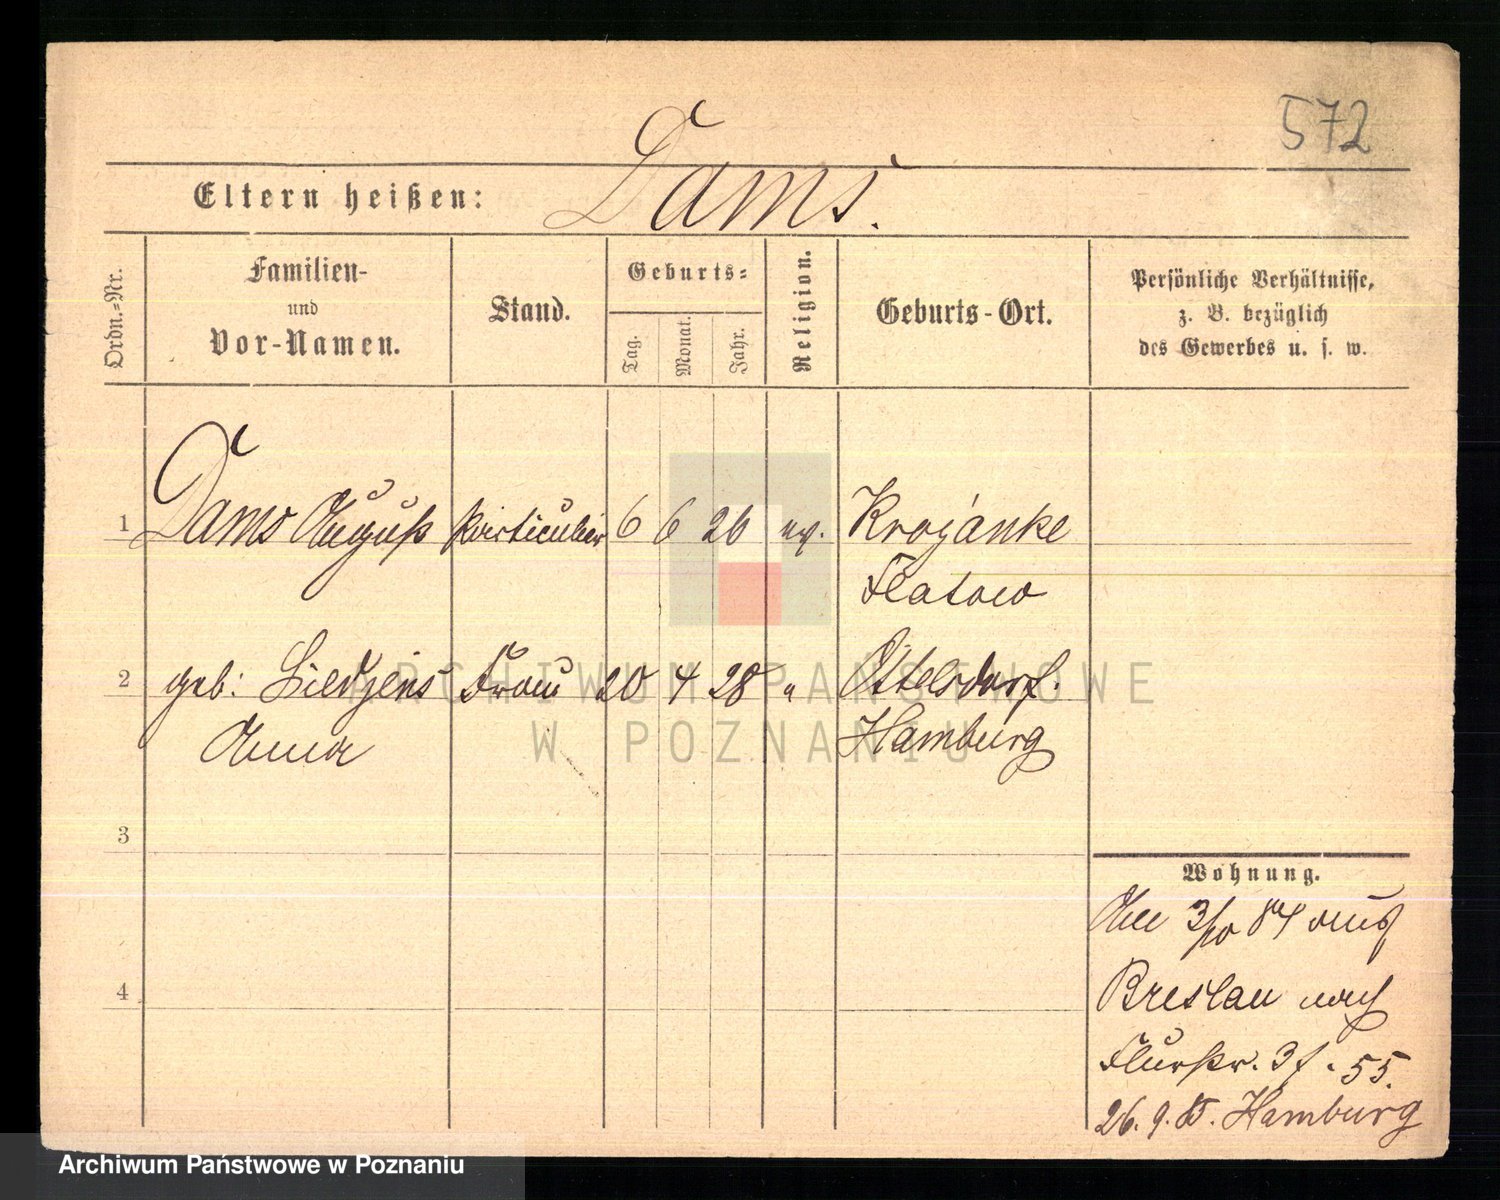 572
Dams.
Eltern heißen:
Ordn.-Nr.
Familien-
und
Vor-Namen.
Stand.
Geburts-
Tag.
Monat.
Jahr.
Religion.
Geburts-Ort.
Persönliche Verhältnisse,
z. B. bezüglich
des Gewerbes u. s. w.
1 Dams August Particulier 6 6 26 ev. Krojanke
Flatow
2 geb: Frau 20 4 28 " Ottelsdorf.
Anna Hamburg
3
4
Wohnung.
3/10 84 aus
Breslau nach
Flurstr.
26. 9. 85. Hamburg
ARCHIWUM PAŃSTWOWE
W POZNANIU
Archiwum Państwowe w Poznaniu